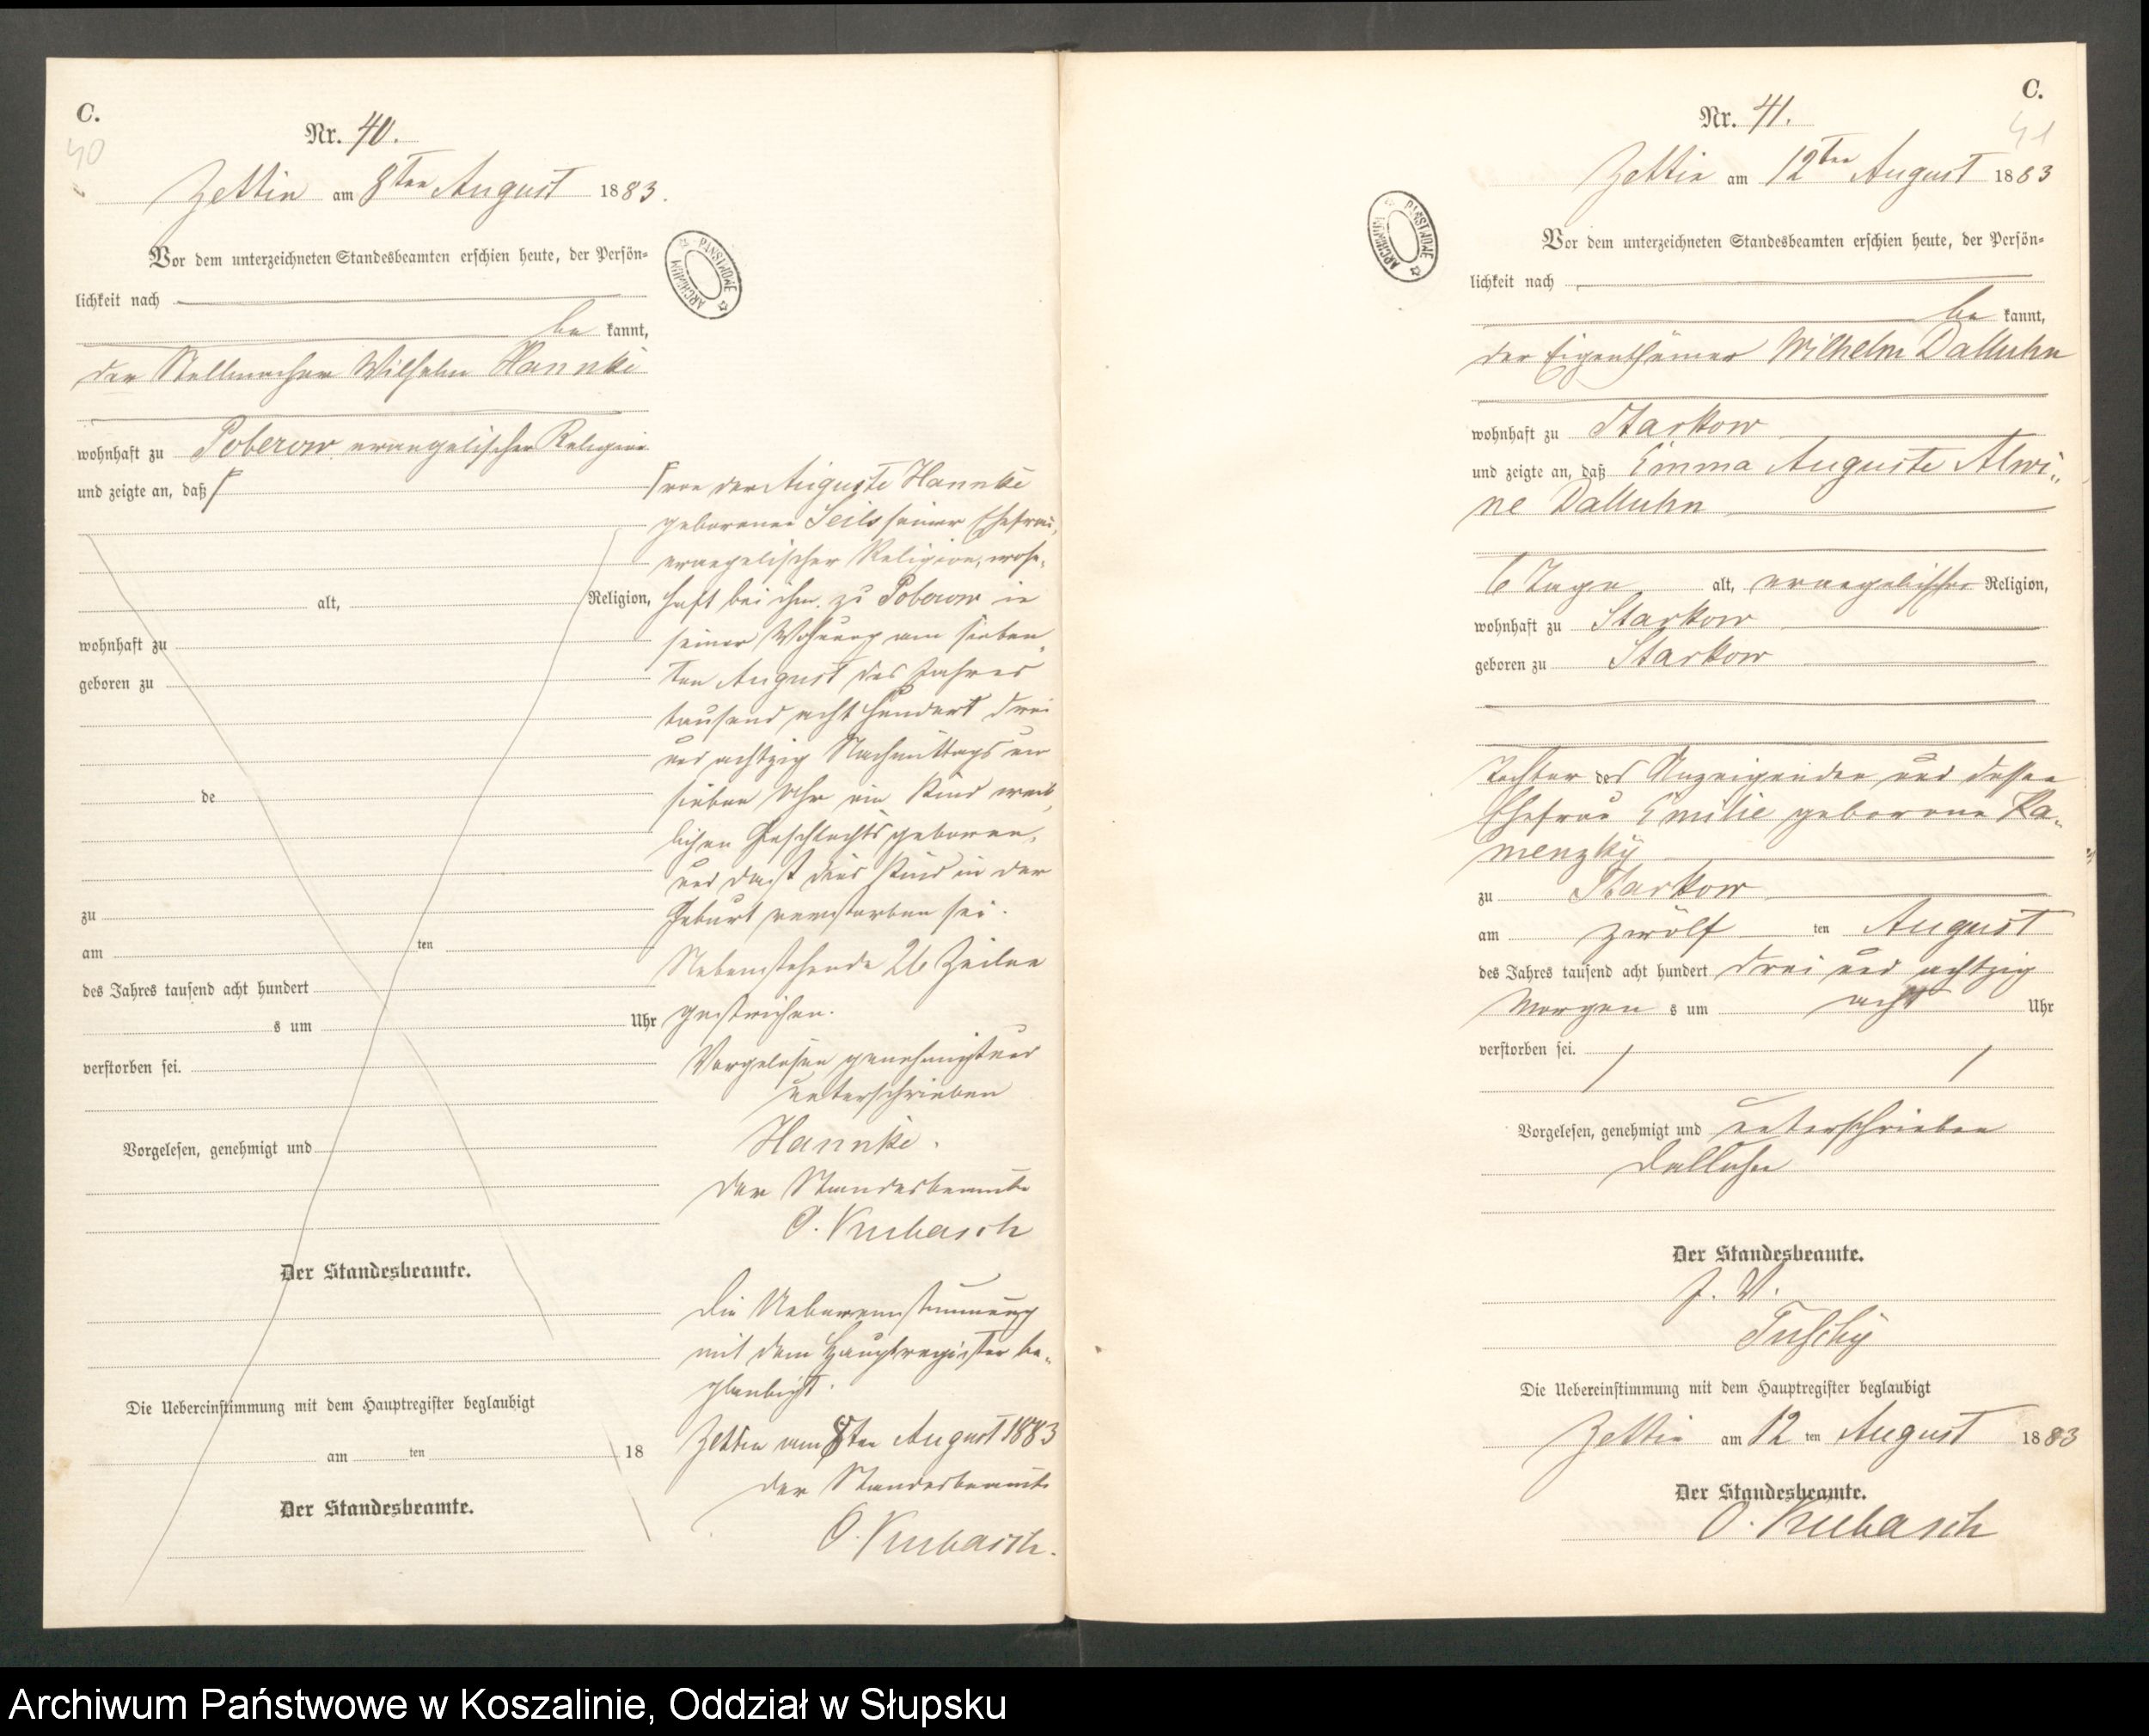 C.
40
Nr. 40.
Zettin am 8ten August 1883.
Vor dem unterzeichneten Standesbeamten erschien heute, der Persön-
lichkeit nach
be kannt,
der Stellmacher Wilhelm Hannke
wohnhaft zu Poberow evangelischer Religion
und zeigte an, daß
alt, Religion,
wohnhaft zu
geboren zu
de
zu
am ten
des Jahres tausend acht hundert
s um Uhr
verstorben sei.
Vorgelesen, genehmigt und
Der Standesbeamte.
Die Uebereinstimmung mit dem Hauptregister beglaubigt
am ten 18
Der Standesbeamte.
ARCHIWUM PAŃSTWOWE
von der Auguste Hannke
geborenen Seils seiner Ehefrau,
evangelischer Religion, wohn-
haft bei ihm zu Poberow in
seiner Wohnung am sieben-
ten August des Jahres
tausend acht hundert drei
und achtzig Nachmittags um
sieben Uhr ein Kind weib-
lichen Geschlechts geboren,
und daß dies Kind in der
Geburt verstorben sei.
Nebenstehende 26 Zeilen
gestrichen.
Vorgelesen genehmigt und
unterschrieben
Hannke.
Der Standesbeamte
O. Kubasch
Die Uebereinstimmung
mit dem Hauptregister be-
glaubigt.
Zettin am 8ten August 1883
Der Standesbeamte
O. Kubasch.
C.
41
Nr. 41.
Zettin am 12ten August 1883
ARCHIWUM PAŃSTWOWE
Vor dem unterzeichneten Standesbeamten erschien heute, der Persön-
lichkeit nach
be kannt,
der Eigenthümer Wilhelm Dalluhn
wohnhaft zu Starkow
und zeigte an, daß Emma Auguste Alwi-
ne Dalluhn
6 Tage alt, evangelischer Religion,
wohnhaft zu Starkow
geboren zu Starkow
Tochter des Anzeigenden und dessen
Ehefrau Emilie geborene Ka-
menzky
zu Starkow
am zwölf ten August
des Jahres tausend acht hundert drei und achtzig
Morgen s um acht Uhr
verstorben sei.
Vorgelesen, genehmigt und unterschrieben
Dalluhn
Der Standesbeamte.
J. V.
Die Uebereinstimmung mit dem Hauptregister beglaubigt
Zettin am 12 ten August 1883
Der Standesbeamte.
O. Kubasch
Archiwum Państwowe w Koszalinie, Oddział w Słupsku